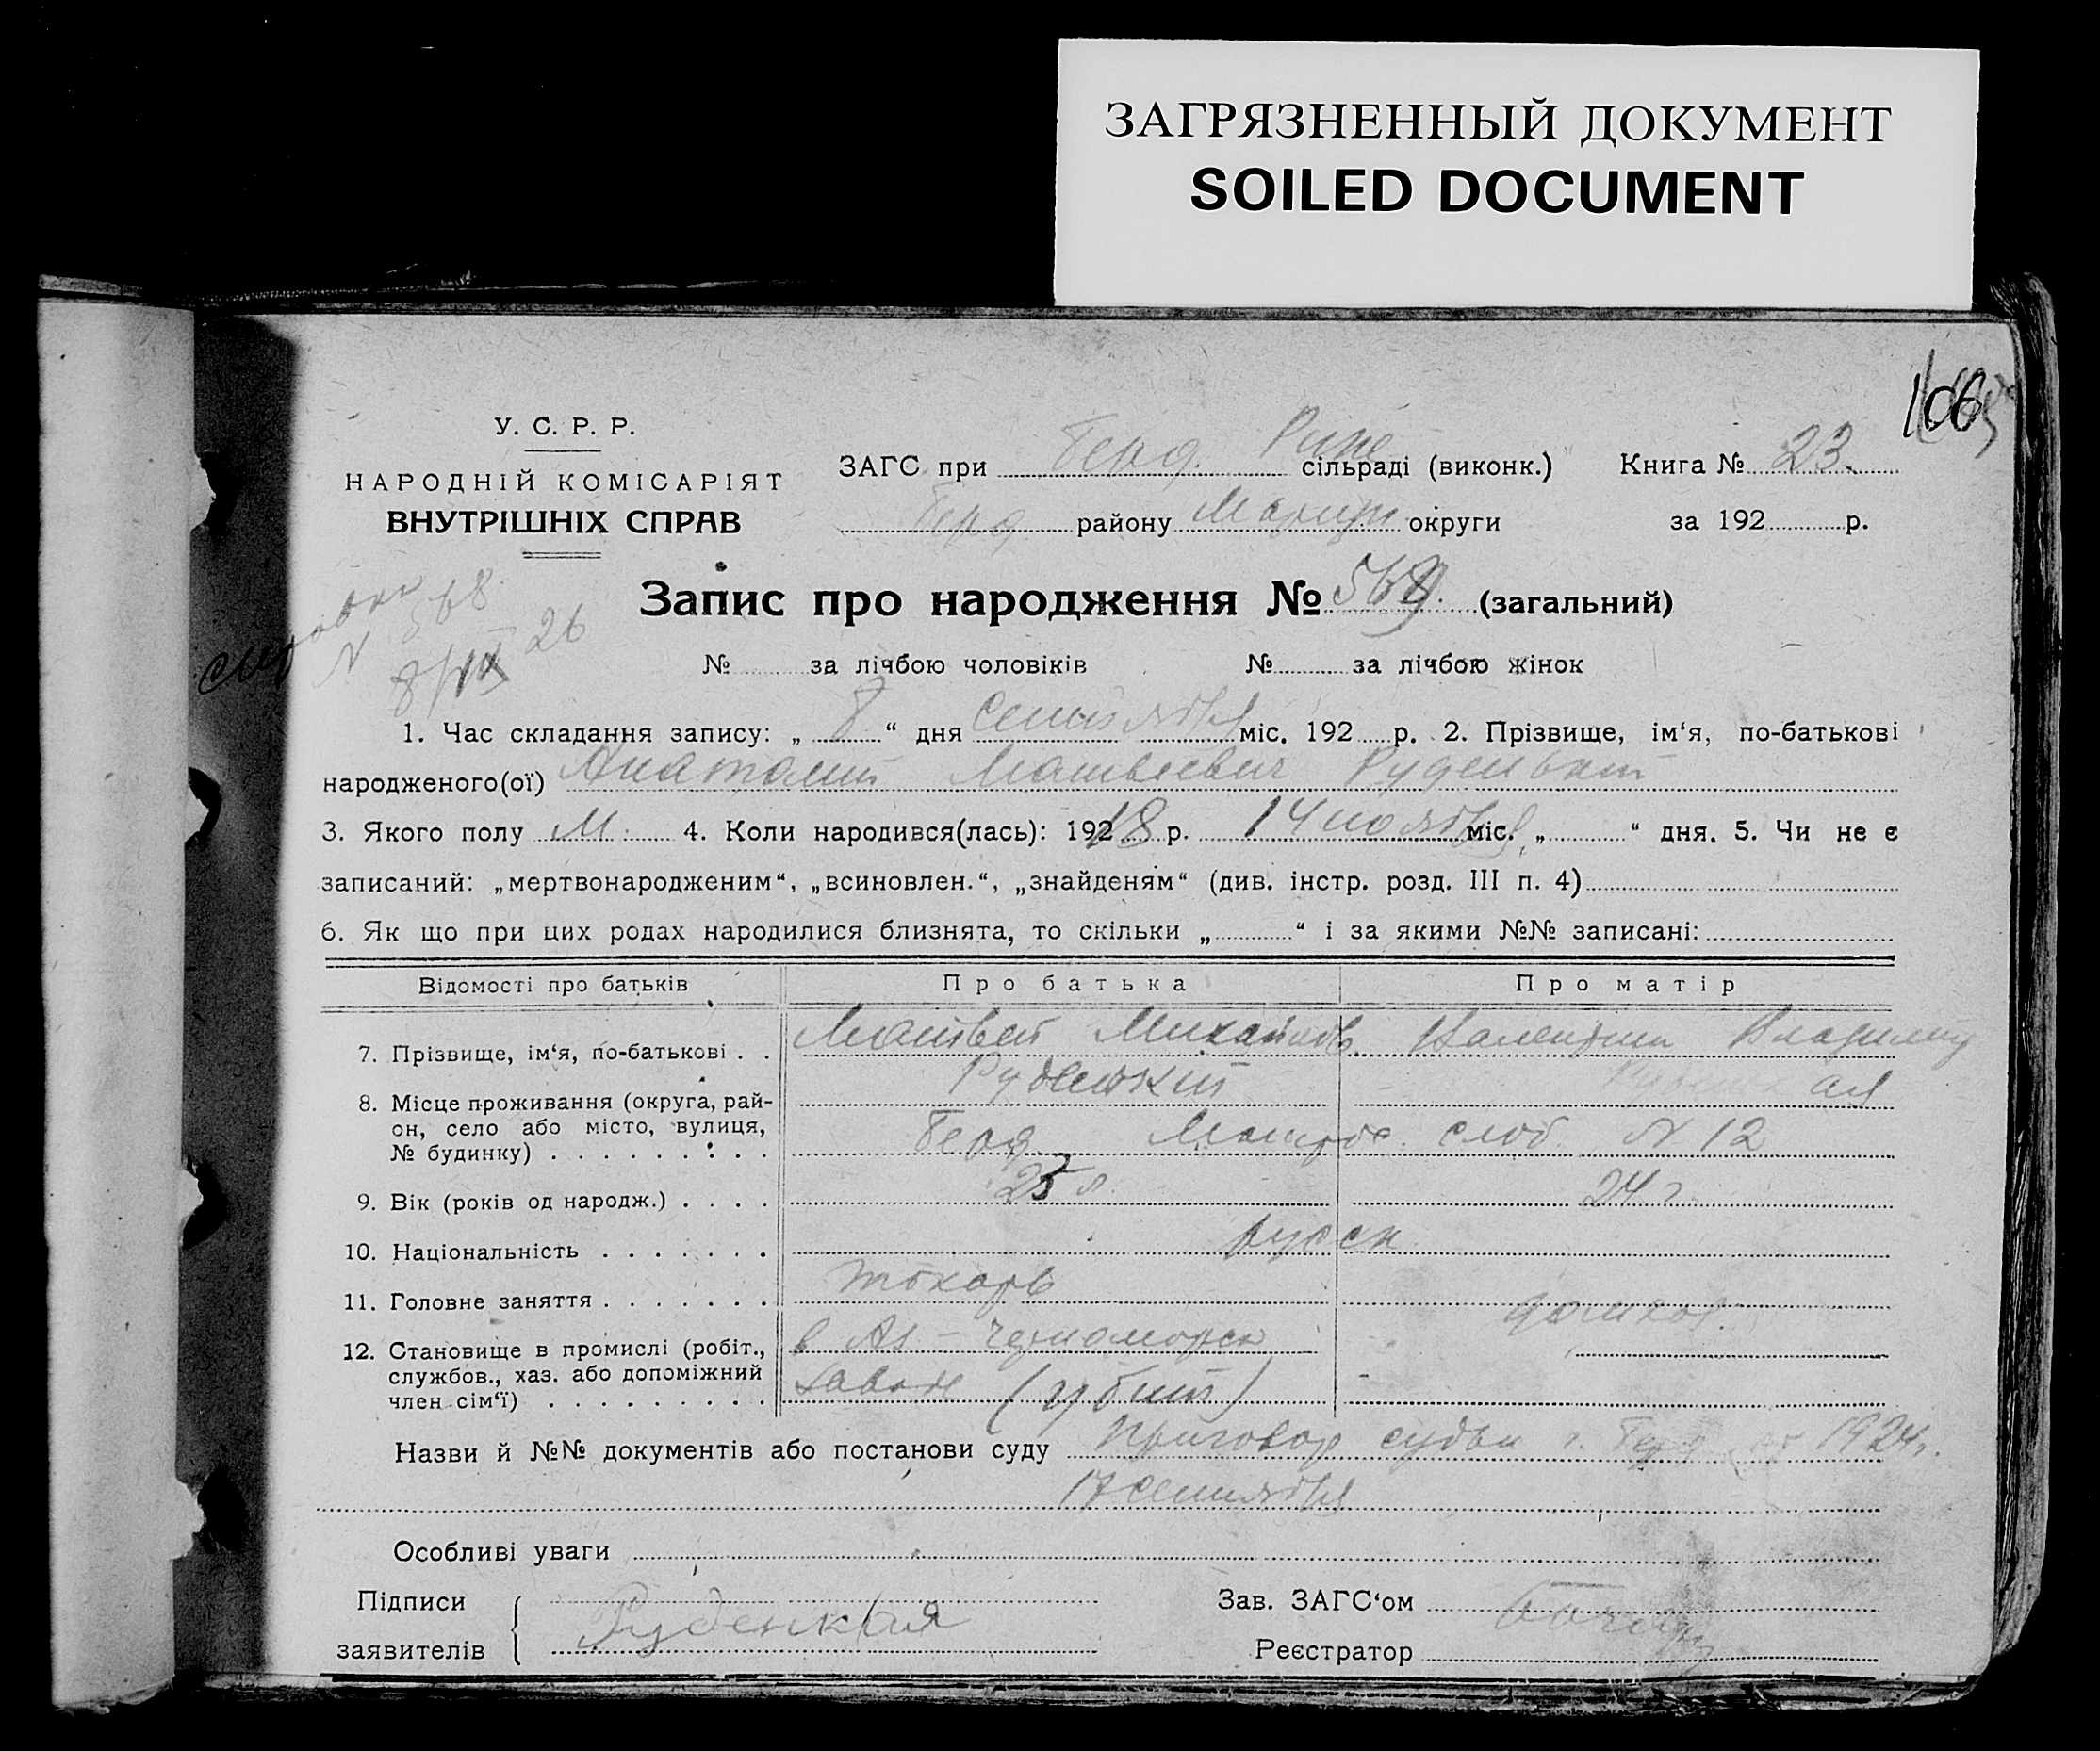 ЗАГРЯЗНЕННЫЙ ДОКУМЕНТ
SOILED DOCUMENT
106
У. С. Р. Р.
НАРОДНІЙ КОМІСАРІЯТ
ВНУТРІШНІХ СПРАВ
ЗАГС при Берд. сільраді (виконк.) Книга № 23.
Берд району Мариуп округи за 192 р.
N 568
26
Запис про народження № 569. (загальний)
№ за лічбою чоловіків № за лічбою жінок
1. Час складання запису: „ 8 “ дня сентября міс. 192 р. 2. Прізвище, ім‘я, по-батькові
народженого(ої) Анатолий Матвеевич
3. Якого полу М. 4. Коли народився(лась): 192 18 р. 14 ноября міс. „ “ дня. 5. Чи не є
записаний: „мертвонародженим“, „всиновлен.“, „знайденям“ (див. інстр. розд. III п. 4)
6. Як що при цих родах народилися близнята, то скільки „ “ і за якими №№ записані:
Відомості про батьків Про батька Про матір
7. Прізвище, ім‘я, по-батькові . . Матвей Михайлов. Валентина Владимир
ая
8. Місце проживання (округа, рай-
он, село або місто, вулиця,
№ будинку) . . . . . . . . . Берд. Матрос. слоб. N 12
9. Вік (років од народж.) . . . . 25 л. 24 г.
10. Національність . . . . . . . русск
11. Головне заняття . . . . . . . токарь
домхоз.
12. Становище в промислі (робіт.,
службов., хаз. або допоміжний
член сім‘ї) . . . . . . . . . в Аз – Черноморск
заводе (убит)
Назви й №№ документів або постанови суду Приговор судьи г. Берд от 1924г.
17 сентября
Особливі уваги
Підписи
заявителів Руденская
Зав. ЗАГС‘ом
Реєстратор